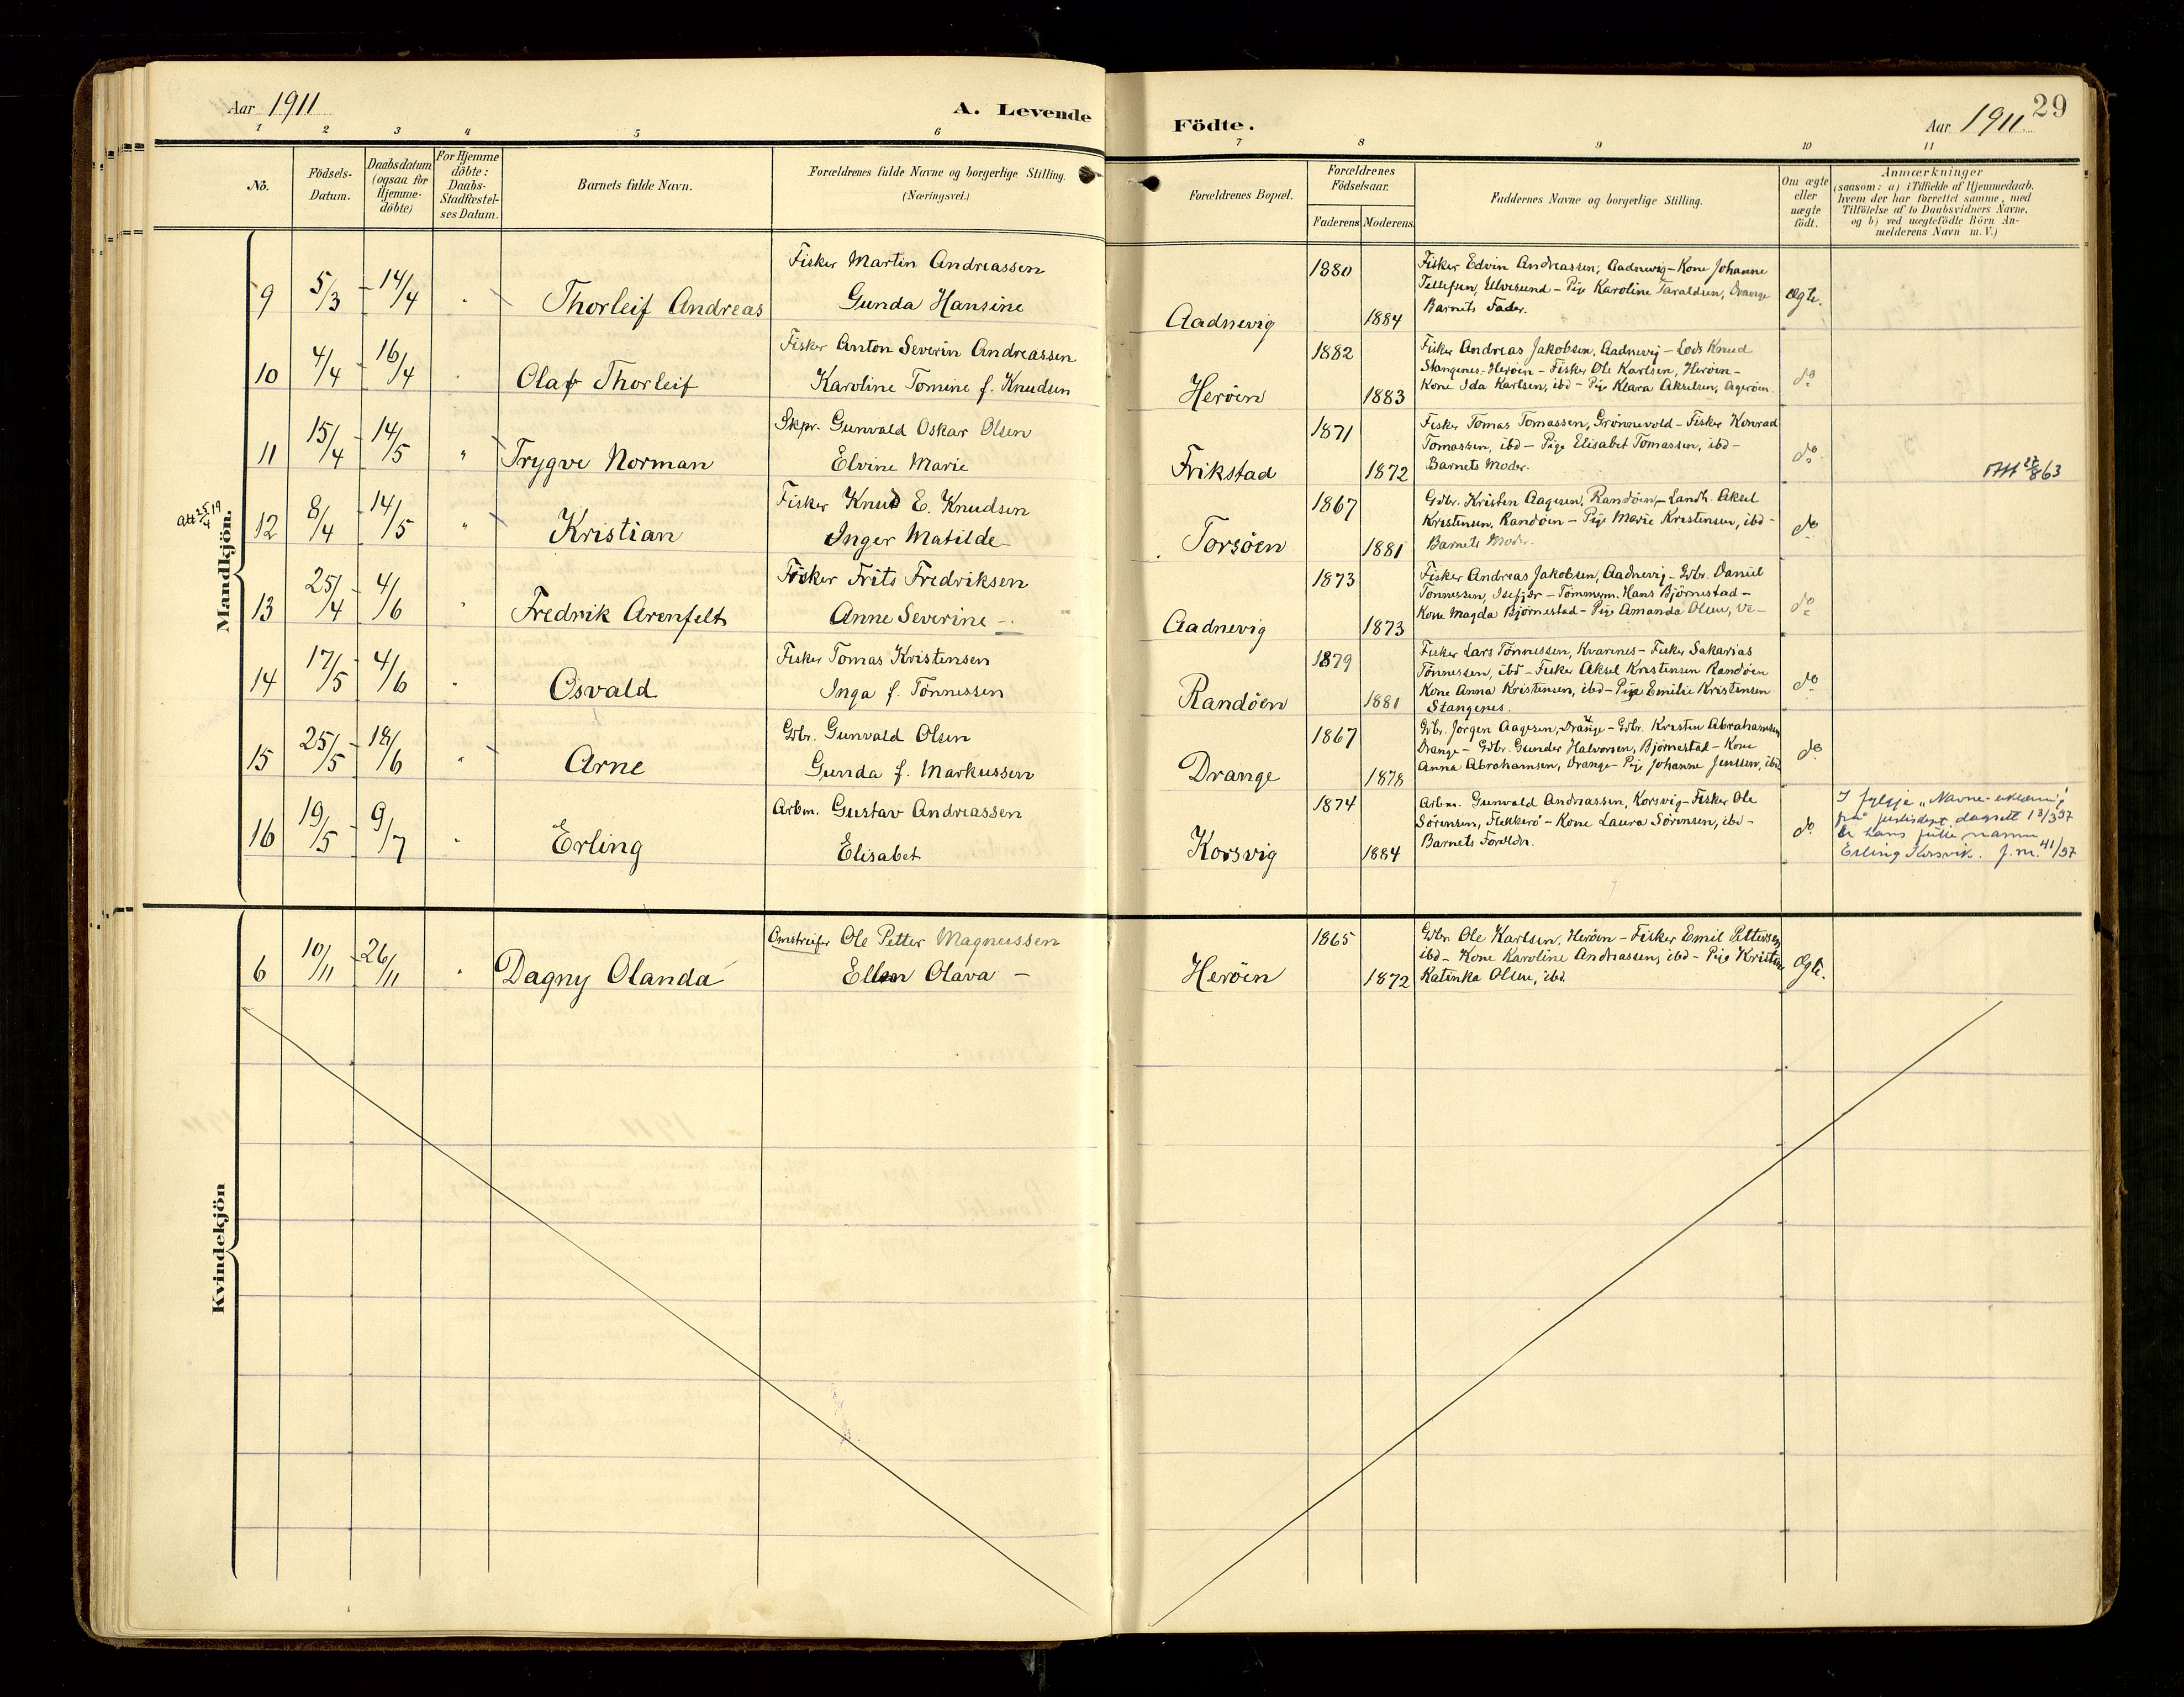 Aar 1911
A. Levende
1 2 3 4 5 6
No.
Födsels-
Datum.
Daabsdatum
(ogsaa for
Hjemme-
döbte)
For Hjemme
döbte:
Daabs-
Stadfæstel-
ses Datum.
Barnets fulde Navn.
Forældrenes fulde Navne og borgerlige Stilling.
(Næringsvei.)
Mandkjön.
9 5/3 14/4 " Thorleif Andreas
Fisker Martin Andreassen
Gunda Hansine
10 4/4 16/4 " Olaf Thorleif
Fisker Anton Severin Andreassen
Karoline Tomine f. Knudsen
11 15/4 14/5 " Trygve Norman
Skpr. Gunvald Oskar Olsen
Elvine Marie
Att 25/4 19
12 8/4 14/5 " Kristian
Fisker Knud E. Knudsen
Inger Matilde –
13 25/4 4/6 " Fredrik Arenfelt
Fisker Frits Fredriksen
Anne Severine –
14 17/5 4/6 " Osvald
Fisker Tomas Kristensen
Inga f. Tönnessen
15 25/5 18/6 " Arne
Gbr. Gunvald Olsen
Gunda f. Markussen
16 19/5 9/7 " Erling
Arbm. Gustav Andreassen
Elisabet
Kvindekjön
6 10/11 26/11 " Dagny Olanda
Omstreifer Ole Petter Magnussen
Ellen Olava –
Födte.
Aar 1911
29
7 8 9 10 11
Forældrenes Bopæl.
Forældrenes
Födselsaar.
Faderens Moderens
Faddernes Navne og borgerlige Stilling.
Om ægte
eller
uægte
födt.
Anmærkninger
(saasom: a) i Tilfælde af Hjemmedaab.
hvem der har forrettet samme, med
Tilföielse af to Daabsvidners Navne.
og b) ved uægtefödte Börn An-
melderens Navn m. V.)
Aadnevig 1880 1884
Fisker Edvin Andreassen, Aadnevig – Kone Johanne
Tellefsen, Ulvesund – Pige Karoline Taraldsen, Drange
Barnets Fader.
Ægte.
Heröen 1882 1883
Fisker Andreas Jakobsen, Aadnevig – Lods Knud
Stangenes, Heröen – Fisker Ole Karlsen, Heröen –
Kone Ida Karlsen, ibd – Pige Klara Akselsen, Ageröen.
do
Frikstad 1871 1872
Fisker Tomas Tomassen, Grönnevold – Fisker Konrad
Tomassen, ibd – Pige Elisabet Tomassen, ibd –
Barnets Moder.
do
Att 27/8 63
Torsöen 1867 1881
Gdbr. Kristen Aagesen, Randöen – Landh. Aksel
Kristensen, Randöen – Pige Marie Kristensen, ibd –
Barnets Moder.
do
Aadnevig 1873 1873
Fisker Andreas Jakobsen, Aadnevig – Gbr. Daniel
Tönnessen, Isefjær – Tömmerm. Hans Björnestad –
Kone Magda Björnestad – Pige Amanda Olsen,
do
Randöen 1879 1881
Fisker Lars Tönnessen, Kvarenes – Fisker Sakarias
Tönnessen, ibd – Fisker Aksel Kristensen Randöen
Kone Anna Kristensen, ibd – Pige Emilie Kristensen
Stangenes.
do
Drange 1867 1878
Gbr. Jörgen Aagesen, Drange – Gbr. Kristen Abrahamsen
Drange – Gbr. Gunder Halvorsen, Björnestad – Kone
Anna Abrahamsen, Drange – Pige Johanne Jenssen, ibd
do
Korsvig 1874 1884
Arbm. Gunvald Andreassen, Korsvig – Fisker Ole
Sörensen, Flekkerö – Kone Laura Sörensen, ibd –
Barnets Forældre.
do.
I fylgje "Navne-erklæring"
frå justisdept dagsett 13/3 37
er hans fulle namn
Erling Korsvik. J.nr. 41/37
Heröen 1865 1872
Gbr. Ole Karlsen, Heröen – Fisker Emil Pettersen
ibd – Kone Karoline Andreassen, ibd – Pige Kristine
Katinka Olsen, ibd.
Ægte.